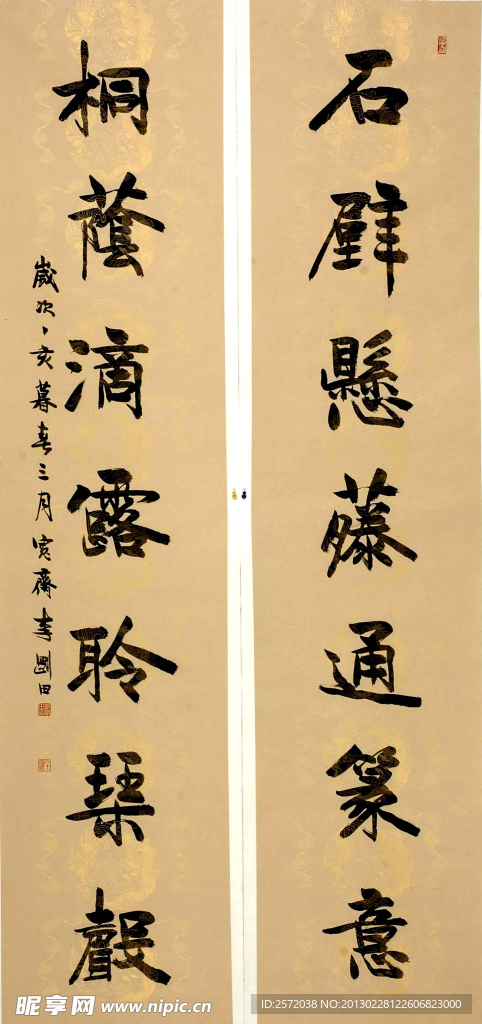 石壁懸藤通篆意
桐蔭滴露聆琴聲
歲次丁亥暮春三月寬齋李剛田
昵享网 www.nipic.cn
ID:2572038 NO:20130228122606823000